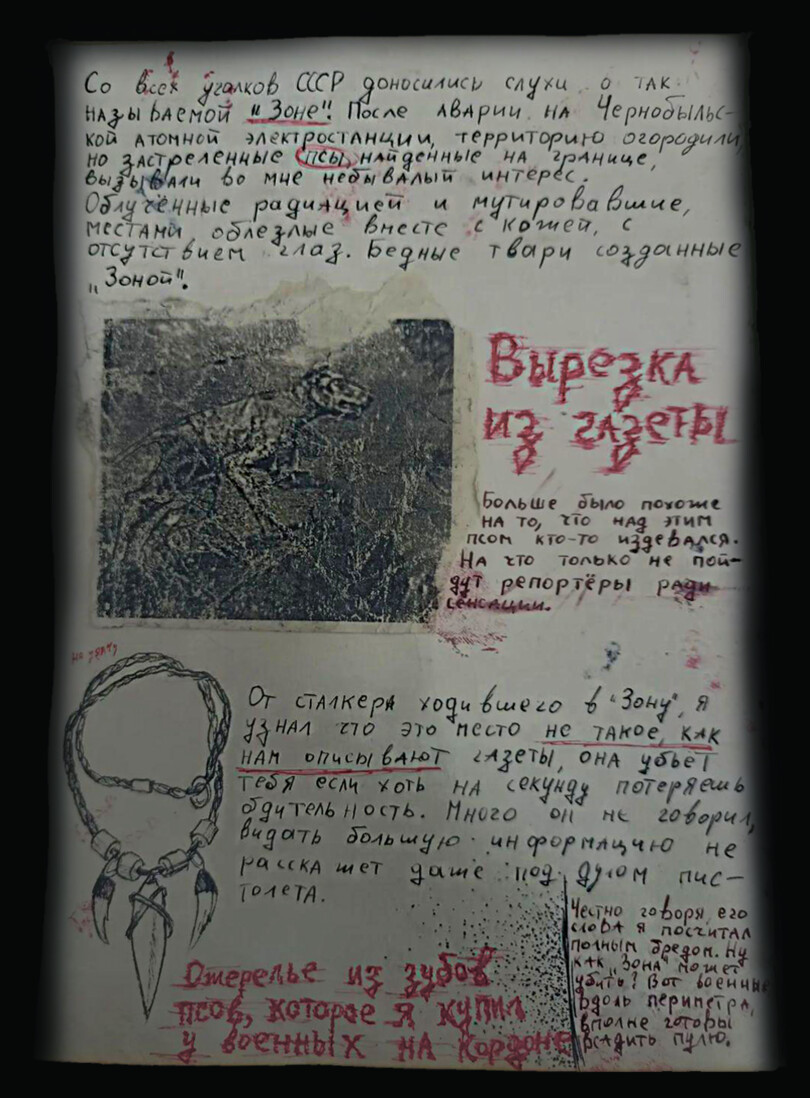 Со всех уголков СССР доносились слухи о так
называемой „Зоне". После аварии на Чернобыльс-
кой атомной электростанции, территорию огородили,
но застреленные псы, найденные на границе,
вызывали во мне небывалый интерес.
Облучённые радиацией и мутировавшие,
местами облезлые вместе с кожей, с
отсутствием глаз. Бедные твари созданные
„Зоной".
Вырезка
из газеты
Больше было похоже
на то, что над этим
псом кто-то издевался.
На что только не пой-
дут репортёры ради
сенсации.
на удачу
От сталкера ходившего в "Зону", я
узнал что это место не такое, как
нам описывают газеты, она убьёт
тебя если хоть на секунду потеряешь
бдительность. Много он не говорил,
видать большую информацию не
расскажет даже под дулом пис-
толета.
Честно говоря, его
слова я посчитал
полным бредом. Ну
как „Зона" может
убить? Вот военные
вдоль периметра,
вполне готовы
всадить пулю.
Ожерелье из зубов
псов, которое я купил
у военных на Кордоне